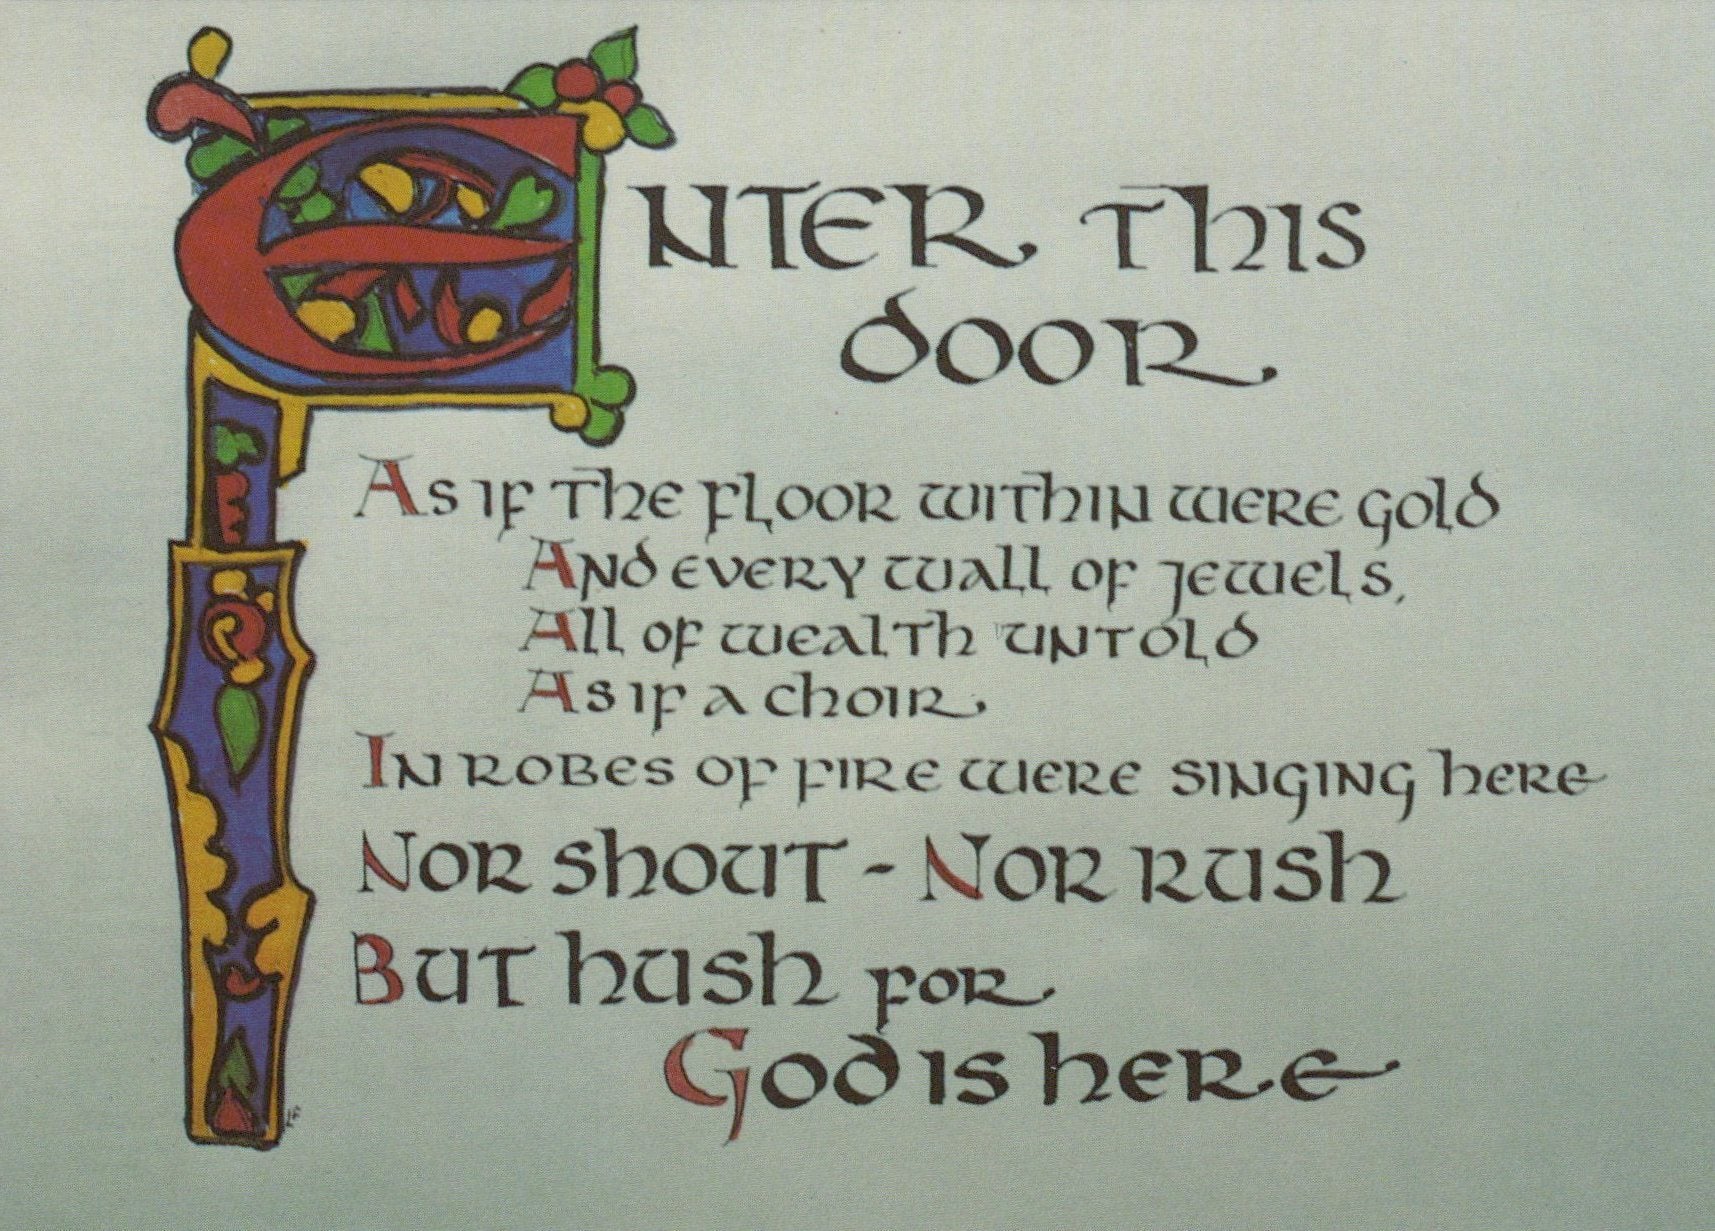 Enter this
door
As if the floor within were gold
And every wall of jewels,
All of wealth untold
As if a choir
In robes of fire were singing here
Nor shout - Nor rush
But hush for
God is here